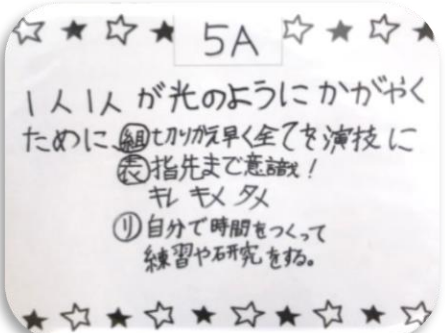 ☆★☆★ 5A ☆★☆★
1人1人が光のようにかがやく
ために、㊔切りかえ早く全てを演技に
㊝指先まで意識!
キレ キメ タメ
リ 自分で時間をつくって
練習や研究をする。
★☆★☆★☆★☆★☆